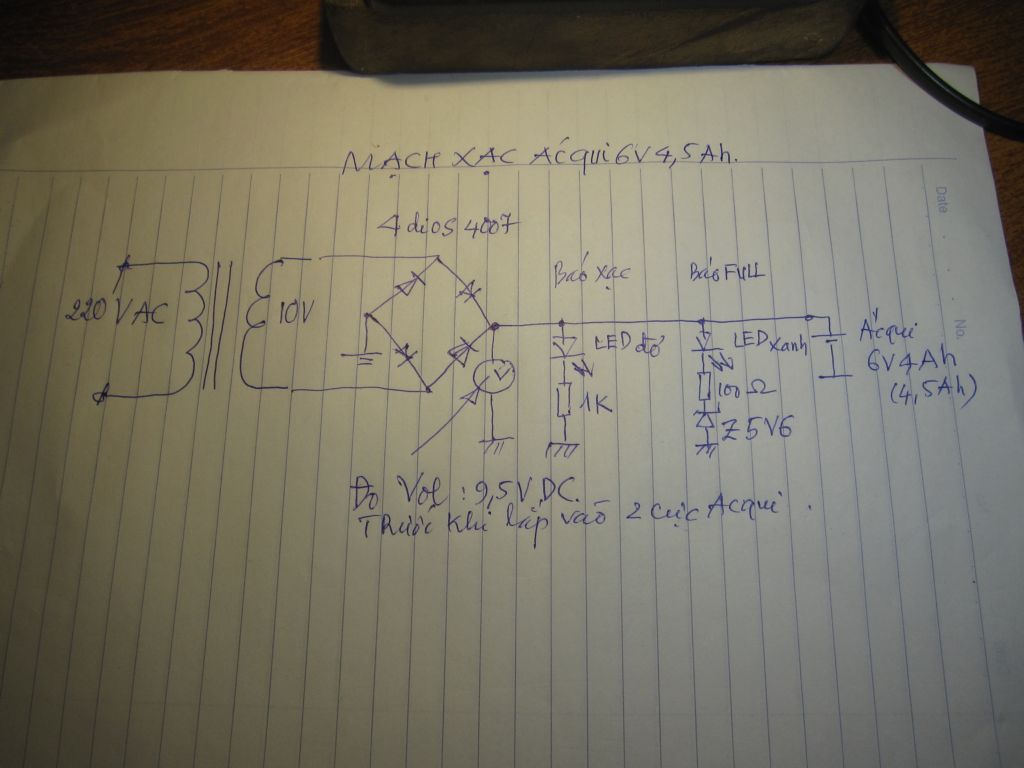 MẠCH XẠC ẮCQUI 6V4,5Ah.
4 dios 4007
220 VAC
10V
Báo Xạc
Báo FULL
LED đỏ
1K
LED xanh
100 Ω
Z 5V6
Ắcqui
6V4Ah
(4,5Ah)
V
Đo Vol : 9,5V DC.
Trước khi lắp vào 2 cực Acqui .
Date
No.